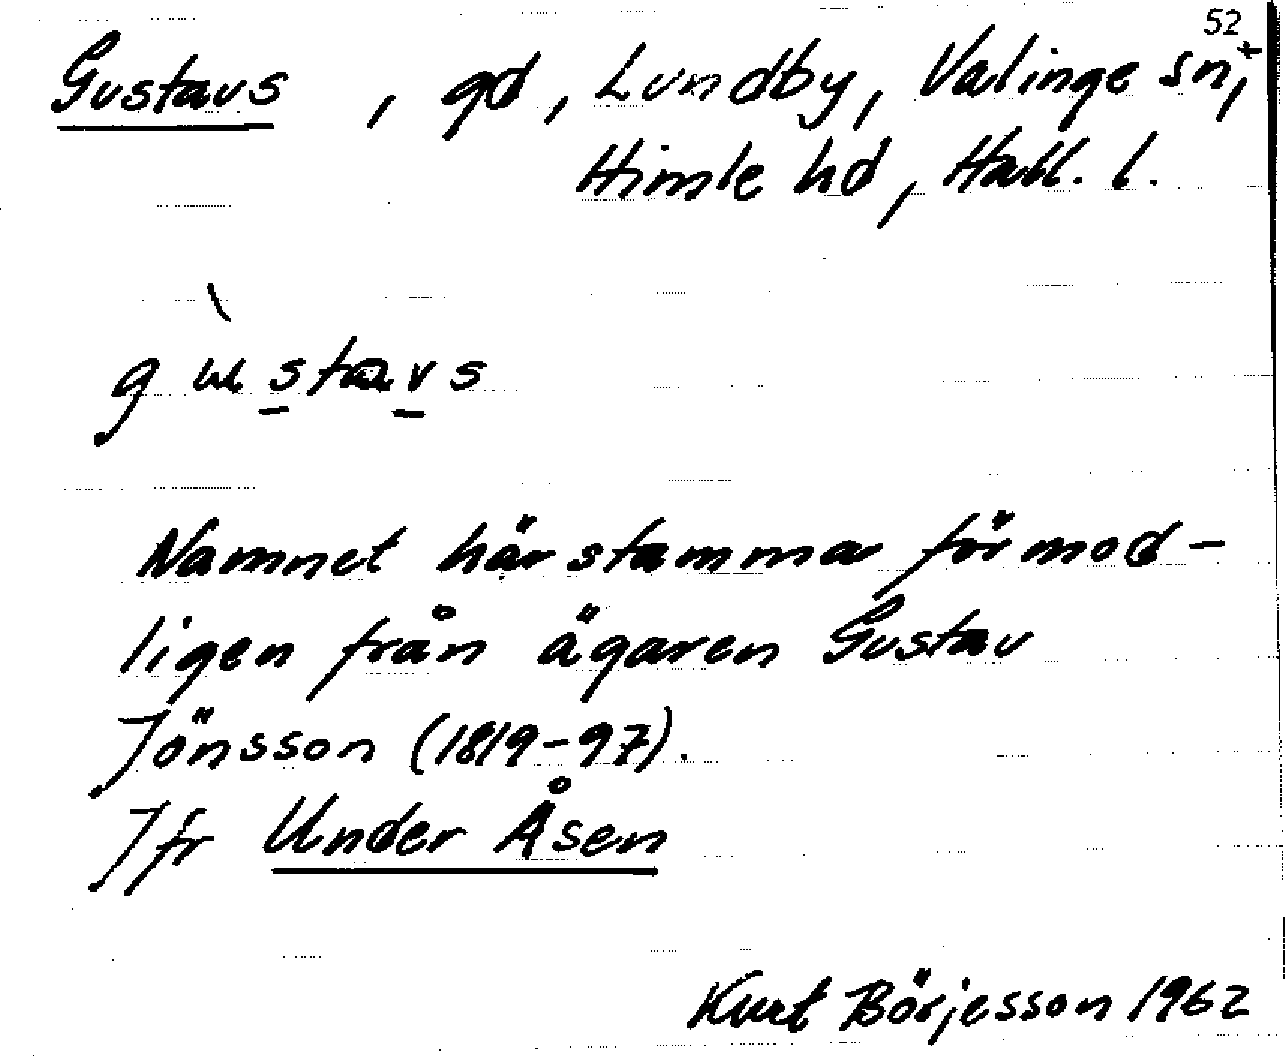 52
Gustavs , gd, Lundby, Valinge sn,+
Himle hd, Hall. l.
gùstavs
Namnet härstammar förmod-
ligen från ägaren Gustav
Jönsson (1819-97).
Jfr Under Åsen
Kurt Börjesson 1962